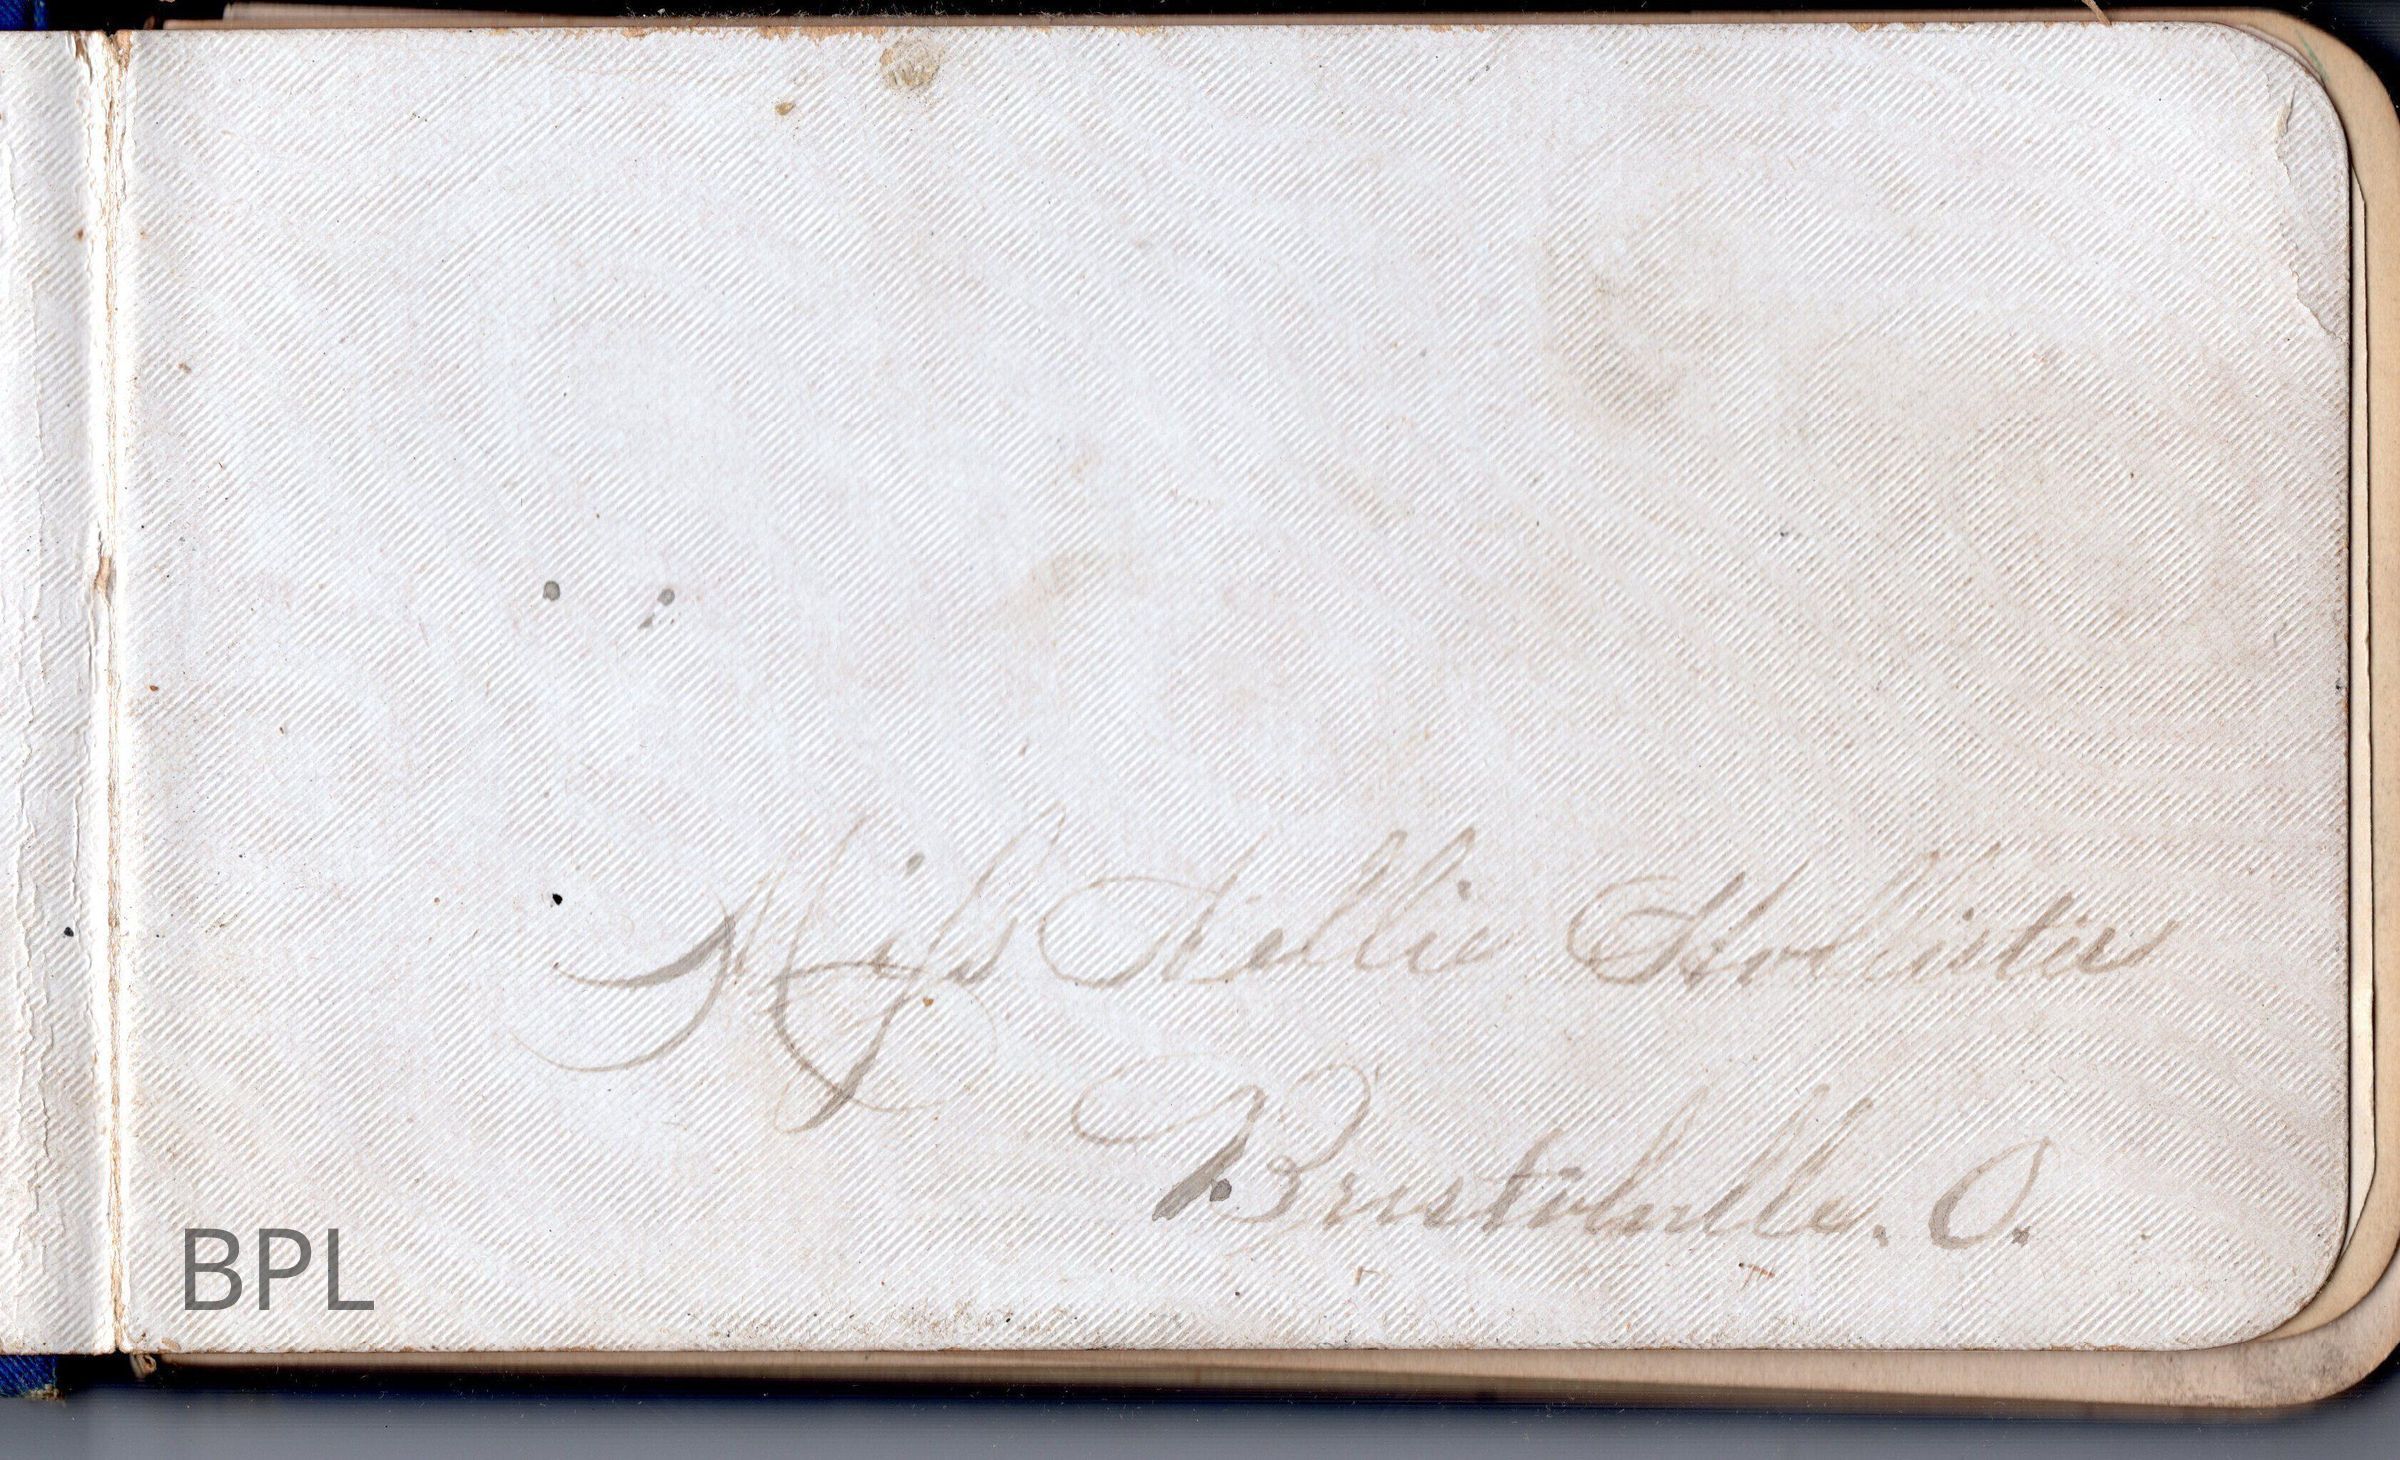 Miss Nellie Hollister
Bristolville. O.
BPL